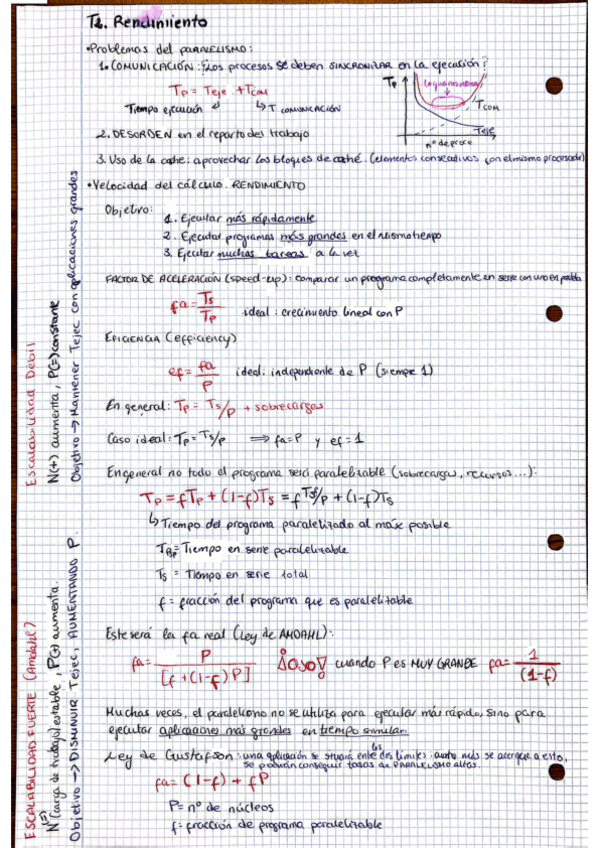 T2. Rendimiento
•Problemas del PARALELISMO:
1. COMUNICACIÓN: Los procesos se deben SINCRONIZAR en la ejecución:
Tp = Teje + Tcom
Tiempo ejecución ↳ T COMUNICACIÓN
Tp
TCOM
Teje
nº de proce
2. DESORDEN en el reparto del trabajo
3. Uso de la cache: aprovechar los bloques de caché. (elementos consecutivos con el mismo procesador)
•Velocidad del cálculo. RENDIMIENTO
Objetivo:
1. Ejecutar más rápidamente
2. Ejecutar programas más grandes en el mismo tiempo
3. Ejecutar muchas tareas a la vez
FACTOR DE ACELERACIÓN (speed-up): comparar un programa completamente en serie con uno en
fa = Ts/Tp ideal: crecimiento lineal con P
EFICIENCIA (efficiency)
ef = fa/P ideal: independiente de P (siempre 1)
En general: Tp = Ts/p + sobrecargas
Caso ideal: Tp = Ts/p ⟹ fa=P y ef=1
En general no todo el programa será paralelizable (sobrecargas, recursos...):
Tp = f Tp + (1-f)Ts = f Ts/p + (1-f)Ts
↳ Tiempo del programa paralelizado al máx posible
= Tiempo en serie paralelizable
Ts = Tiempo en serie total
f = fracción del programa que es paralelizable
Este será la fa real (Ley de AMDAHL):
fa = P/[f+(1-f)P] ¡OJO! cuando P es MUY GRANDE fa = 1/(1-f)
Muchas veces, el paralelismo no se utiliza para ejecutar más rápido, sino para
ejecutar aplicaciones más grandes en tiempo similar.
Ley de Gustafson: una aplicación se situará entre los dos límites: cuanto más se acerque a esto,
se podrán conseguir tasas de PARALELISMO altas.
fa = (1-f) + fP
P = nº de núcleos
f = fracción de programa paralelizable
Escalabilidad Debil
N(+) aumenta, P(=) constante
Objetivo → Mantener Tejec con aplicaciones grandes
ESCALABILIDAD FUERTE (Amdahl)
N(=) (carga de trabajo) estable, P(+) aumenta.
Objetivo → DISMINUIR Tejec, AUMENTANDO P.